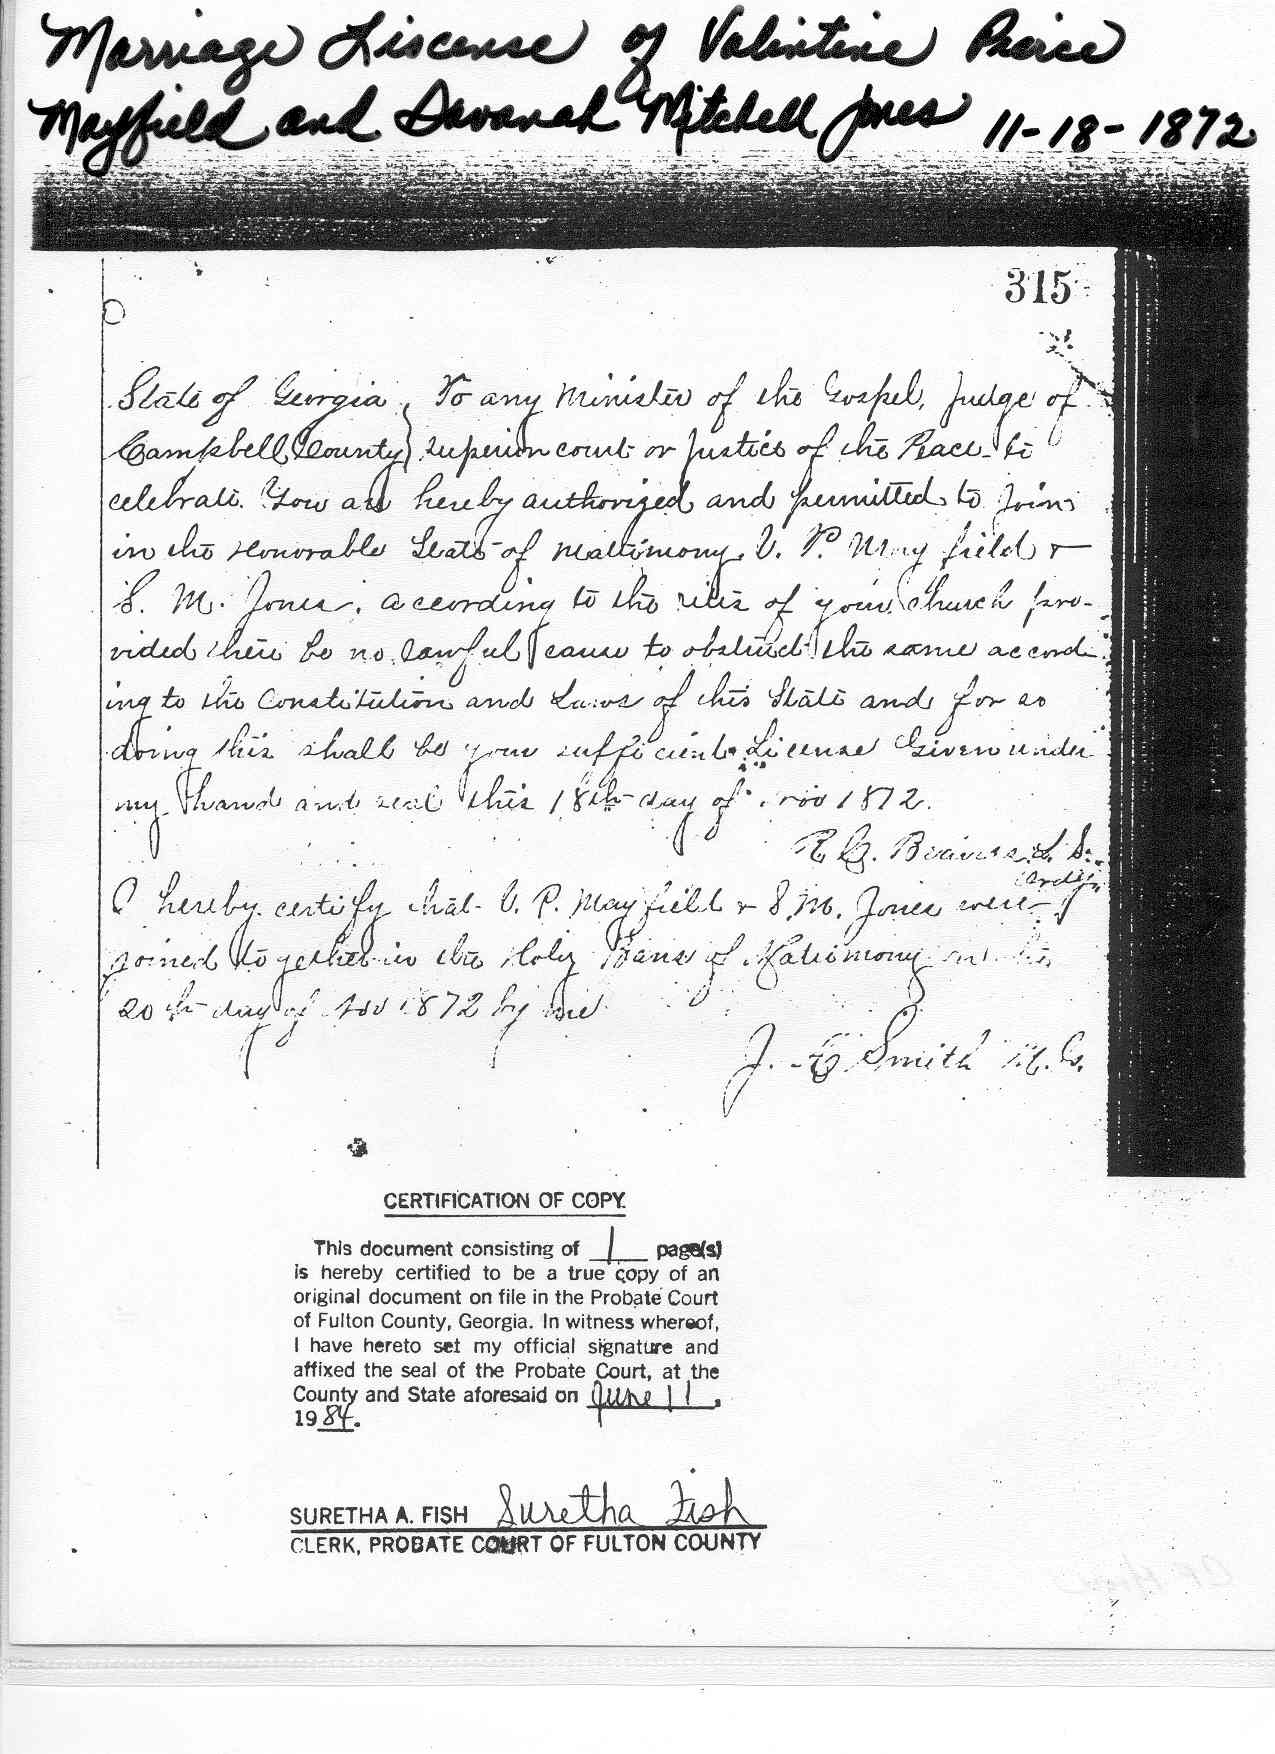 Marriage Liscense of Valentine Pierce
Mayfield and Savanah Mitchell Jones 11-18-1872
315
State of Georgia } To any Minister of the Gospel, Judge of
Campbell County } Superior court or Justice of the Peace to
celebrate. You are hereby authorized and permitted to Join
in the Honorable State of Matrimony, V. P. Mayfield &
S. M. Jones, according to the rites of your church pro-
vided there be no lawful cause to obstruct the same accord
ing to the Constitution and Laws of this State and for so
doing this shall be your sufficient License Given under
my hand and seal this 18th day of Nov 1872.
R. C. Beavers L. S.
Ordy.
I hereby certify that V. P. Mayfield & S. M. Jones were
joined together in the Holy Bans of Matrimony on the
20th day of Nov 1872 by me
J. Smith M. G.
CERTIFICATION OF COPY.
This document consisting of 1 page(s)
is hereby certified to be a true copy of an
original document on file in the Probate Court
of Fulton County, Georgia. In witness whereof,
I have hereto set my official signature and
affixed the seal of the Probate Court, at the
County and State aforesaid on June 11,
1984.
SURETHA A. FISH Suretha Fish
CLERK, PROBATE COURT OF FULTON COUNTY